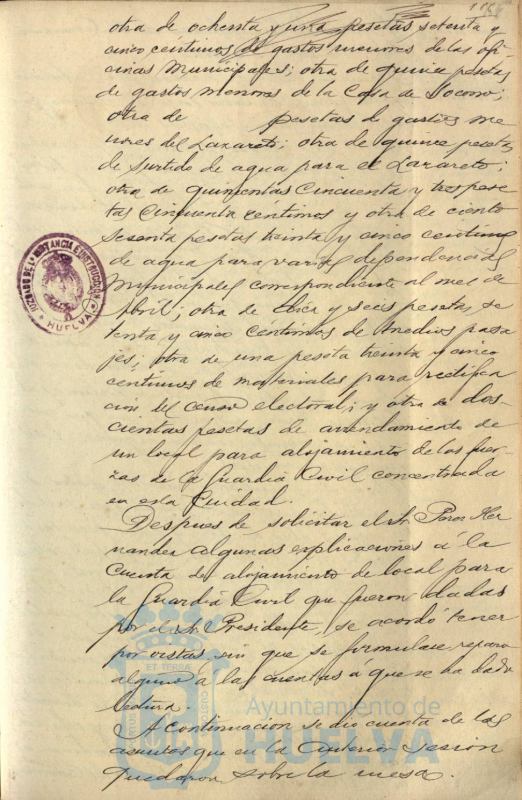 otra de ochenta y una pesetas setenta y
cinco centimos de gastos menores de las ofi
cinas Municipales; otra de quince pesetas
de gastos menores de la Casa de Socorro;
otra de pesetas de gastos me
nores del Lazareto; otra de quince pesetas
de surtido de agua para el Lazareto;
otra de quinientas cincuenta y tres pese
tas cincuenta centimos y otra de ciento
sesenta pesetas treinta y cinco centimos
de agua para varias dependencias
Municipales correspondiente al mes de
Abril; otra de diez y seis pesetas se
tenta y cinco centimos de medios pasa
jes; otra de una peseta treinta y cinco
centimos de materiales para rectifica
cion del censo electoral; y otra de dos-
cientas pesetas de arrendamiento de
un local para alojamiento de las fuer-
zas de la Guardia Civil concentrada
en esta Ciudad.
Despues de solicitar el Sr. Her
nandez algunas explicaciones á la
cuenta de alojamiento de local para
la Guardia Civil que fueron dadas
por el Sr. Presidente, se acordó tener
por vistas sin que se formulase reparo
alguno á las cuentas á que se ha dado
lectura.
A continuacion se dio cuenta de los
asuntos que en la anterior sesion
quedaron sobre la mesa.
JUZGADO DE 1ª INSTANCIA E INSTRUCCION
HUELVA
Ayuntamiento de
HUELVA